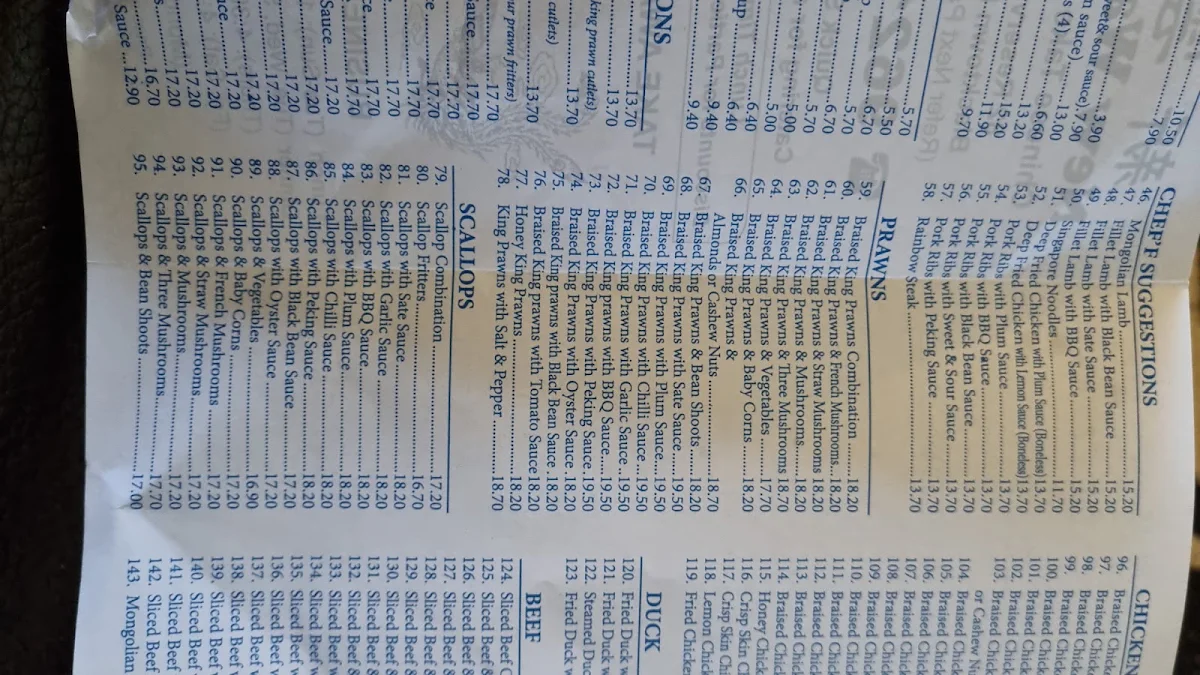 10.50
7.90
sweet&sour sauce).3.90
sauce).7.90
(4)......13.00
6.60
13.20
15.20
11.90
9.70
5.70
5.50
6.70
5.70
6.70
5.70
5.00
5.00
6.40
6.40
9.40
9.40
13.70
13.70
king prawn cutlets)
13.70
cutlets)
13.70
prawn fritters)
17.70
17.70
Sauce......17.70
17.70
17.70
17.70
17.70
Sauce......17.20
17.20
17.20
17.20
17.20
17.20
17.20
16.70
Sauce...12.90
CHEF'F SUGGESTIONS
46. Mongolian Lamb..........15.20
47. Fillet Lamb with Black Bean Sauce......15.20
48. Fillet Lamb with Sate Sauce..........15.20
49. Fillet Lamb with BBQ Sauce..........15.20
50. Singapore Noodles..........11.70
51. Deep Fried Chicken with Plum Sauce (Bondes)13.70
52. Deep Fried Chicken with Lemon Sauce (Bondes)13.70
53. Pork Ribs with Plum Sauce..........13.70
54. Pork Ribs with BBQ Sauce..........13.70
55. Pork Ribs with Black Bean Sauce......13.70
56. Pork Ribs with Sweet & Sour Sauce.....13.70
57. Pork Ribs with Peking Sauce..........13.70
58. Rainbow Steak..........13.70
PRAWNS
59. Braised King Prawns Combination......18.20
60. Braised King Prawns & French Mushrooms..18.20
61. Braised King Prawns & Straw Mushrooms 18.20
62. Braised King Prawns & Three Mushrooms 18.70
63. Braised King Prawns & Mushrooms......18.20
64. Braised King Prawns & Vegetables......17.70
65. Braised King Prawns & Baby Corns.....18.20
66. Braised King Prawns &
Almonds or Cashew Nuts..........18.70
67. Braised King Prawns & Bean Shoots....18.20
68. Braised King Prawns with Sate Sauce....19.50
69. Braised King Prawns with Plum Sauce...19.50
70. Braised King Prawns with Chilli Sauce..19.50
71. Braised King Prawns with Garlic Sauce..19.50
72. Braised King Prawns with BBQ Sauce...19.50
73. Braised King Prawns with Peking Sauce.19.50
74. Braised King Prawns with Oyster Sauce.18.20
75. Braised King Prawns with Black Bean Sauce 18.20
76. Braised King prawns with Tomato Sauce 18.20
77. Honey King Prawns..........18.20
78. King Prawns with Salt & Pepper..........18.70
SCALLOPS
79. Scallop Combination..........17.20
80. Scallop Fritters..........16.70
81. Scallops with Sate Sauce..........18.20
82. Scallops with Garlic Sauce..........18.20
83. Scallops with BBQ Sauce..........18.20
84. Scallops with Plum Sauce..........18.20
85. Scallops with Chilli Sauce..........18.20
86. Scallops with Peking Sauce..........18.20
87. Scallops with Black Bean Sauce..........17.20
88. Scallops with Oyster Sauce..........17.20
89. Scallops & Vegetables..........16.90
90. Scallops & Baby Corns..........17.20
91. Scallops & French Mushrooms..........17.20
92. Scallops & Straw Mushrooms..........17.20
93. Scallops & Mushrooms..........17.20
94. Scallops & Three Mushrooms..........17.70
95. Scallops & Bean Shoots..........17.00
CHICKEN
96. Braised Chick
97. Braised Chick
98. Braised Chick
99. Braised Chick
100. Braised Chick
101. Braised Chick
102. Braised Chick
103. Braised Chick
or Cashew Nu
104. Braised Chick
105. Braised Chick
106. Braised Chick
107. Braised Chick
108. Braised Chick
109. Braised Chick
110. Braised Chick
111. Braised Chick
112. Braised Chick
113. Braised Chick
114. Braised Chick
115. Honey Chick
116. Crisp Skin Ch
117. Crisp Skin Ch
118. Lemon Chick
119. Fried Chicken
DUCK
120. Fried Duck w
121. Fried Duck w
122. Steamed Duc
123. Fried Duck w
BEEF
124. Sliced Beef C
125. Sliced Beef &
126. Sliced Beef &
127. Sliced Beef &
128. Sliced Beef &
129. Sliced Beef &
130. Sliced Beef &
131. Sliced Beef &
132. Sliced Beef &
133. Sliced Beef w
134. Sliced Beef w
135. Sliced Beef w
136. Sliced Beef w
137. Sliced Beef w
138. Sliced Beef w
139. Sliced Beef w
140. Sliced Beef
141. Sliced Beef
142. Sliced Beef
143. Mongolian